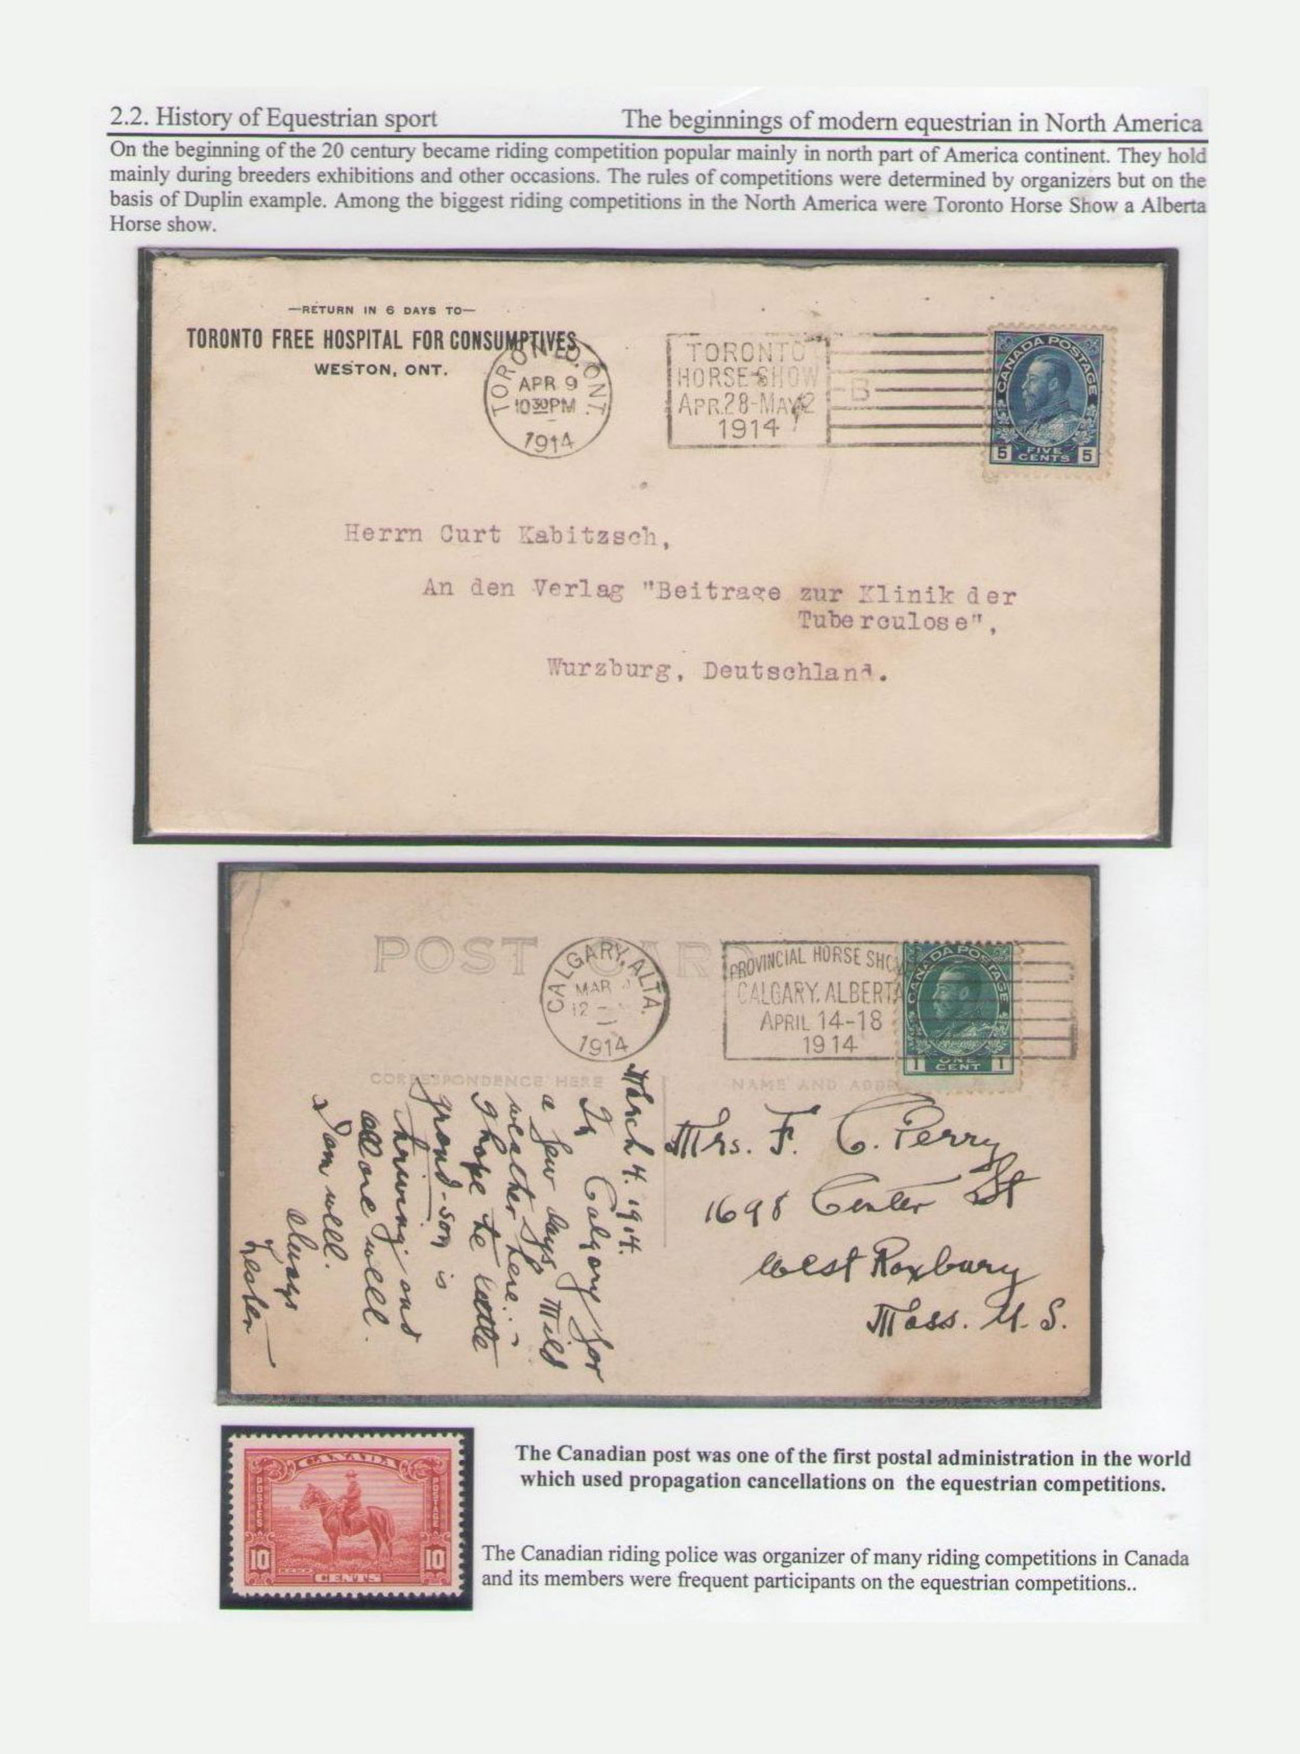 2.2. History of Equestrian sport
The beginnings of modern equestrian in North America
On the beginning of the 20 century became riding competition popular mainly in north part of America continent. They hold
mainly during breeders exhibitions and other occasions. The rules of competitions were determined by organizers but on the
basis of Duplin example. Among the biggest riding competitions in the North America were Toronto Horse Show a Alberta
Horse show.
—RETURN IN 6 DAYS TO—
TORONTO FREE HOSPITAL FOR CONSUMPTIVES
WESTON, ONT.
TORONTO, ONT.
APR 9
10 30 PM
1914
TORONTO
HORSE SHOW
APR. 28-MAY 2
1914
B
CANADA POSTAGE
5 FIVE CENTS 5
Herrn Curt Kabitzsch,
An den Verlag "Beitrage zur Klinik der
Tuberculose",
Wurzburg, Deutschland.
POST CARD
CALGARY, ALTA.
MAR
12
1914
PROVINCIAL HORSE SHOW
CALGARY. ALBERTA
APRIL 14-18
1914
CANADA POSTAGE
1 ONE CENT 1
CORRESPONDENCE HERE
NAME AND ADDR
March 4. 1914.
In Calgary for
a few days. Mild
weather here.
I hope the little
grand-son is
thriving and
all are well.
I am well.
Always
Mrs. F. C. Perry
1698 Center St
West Roxbury
Mass. U. S.
CANADA
POSTES
POSTAGE
10 CENTS 10
The Canadian post was one of the first postal administration in the world
which used propagation cancellations on the equestrian competitions.
The Canadian riding police was organizer of many riding competitions in Canada
and its members were frequent participants on the equestrian competitions..